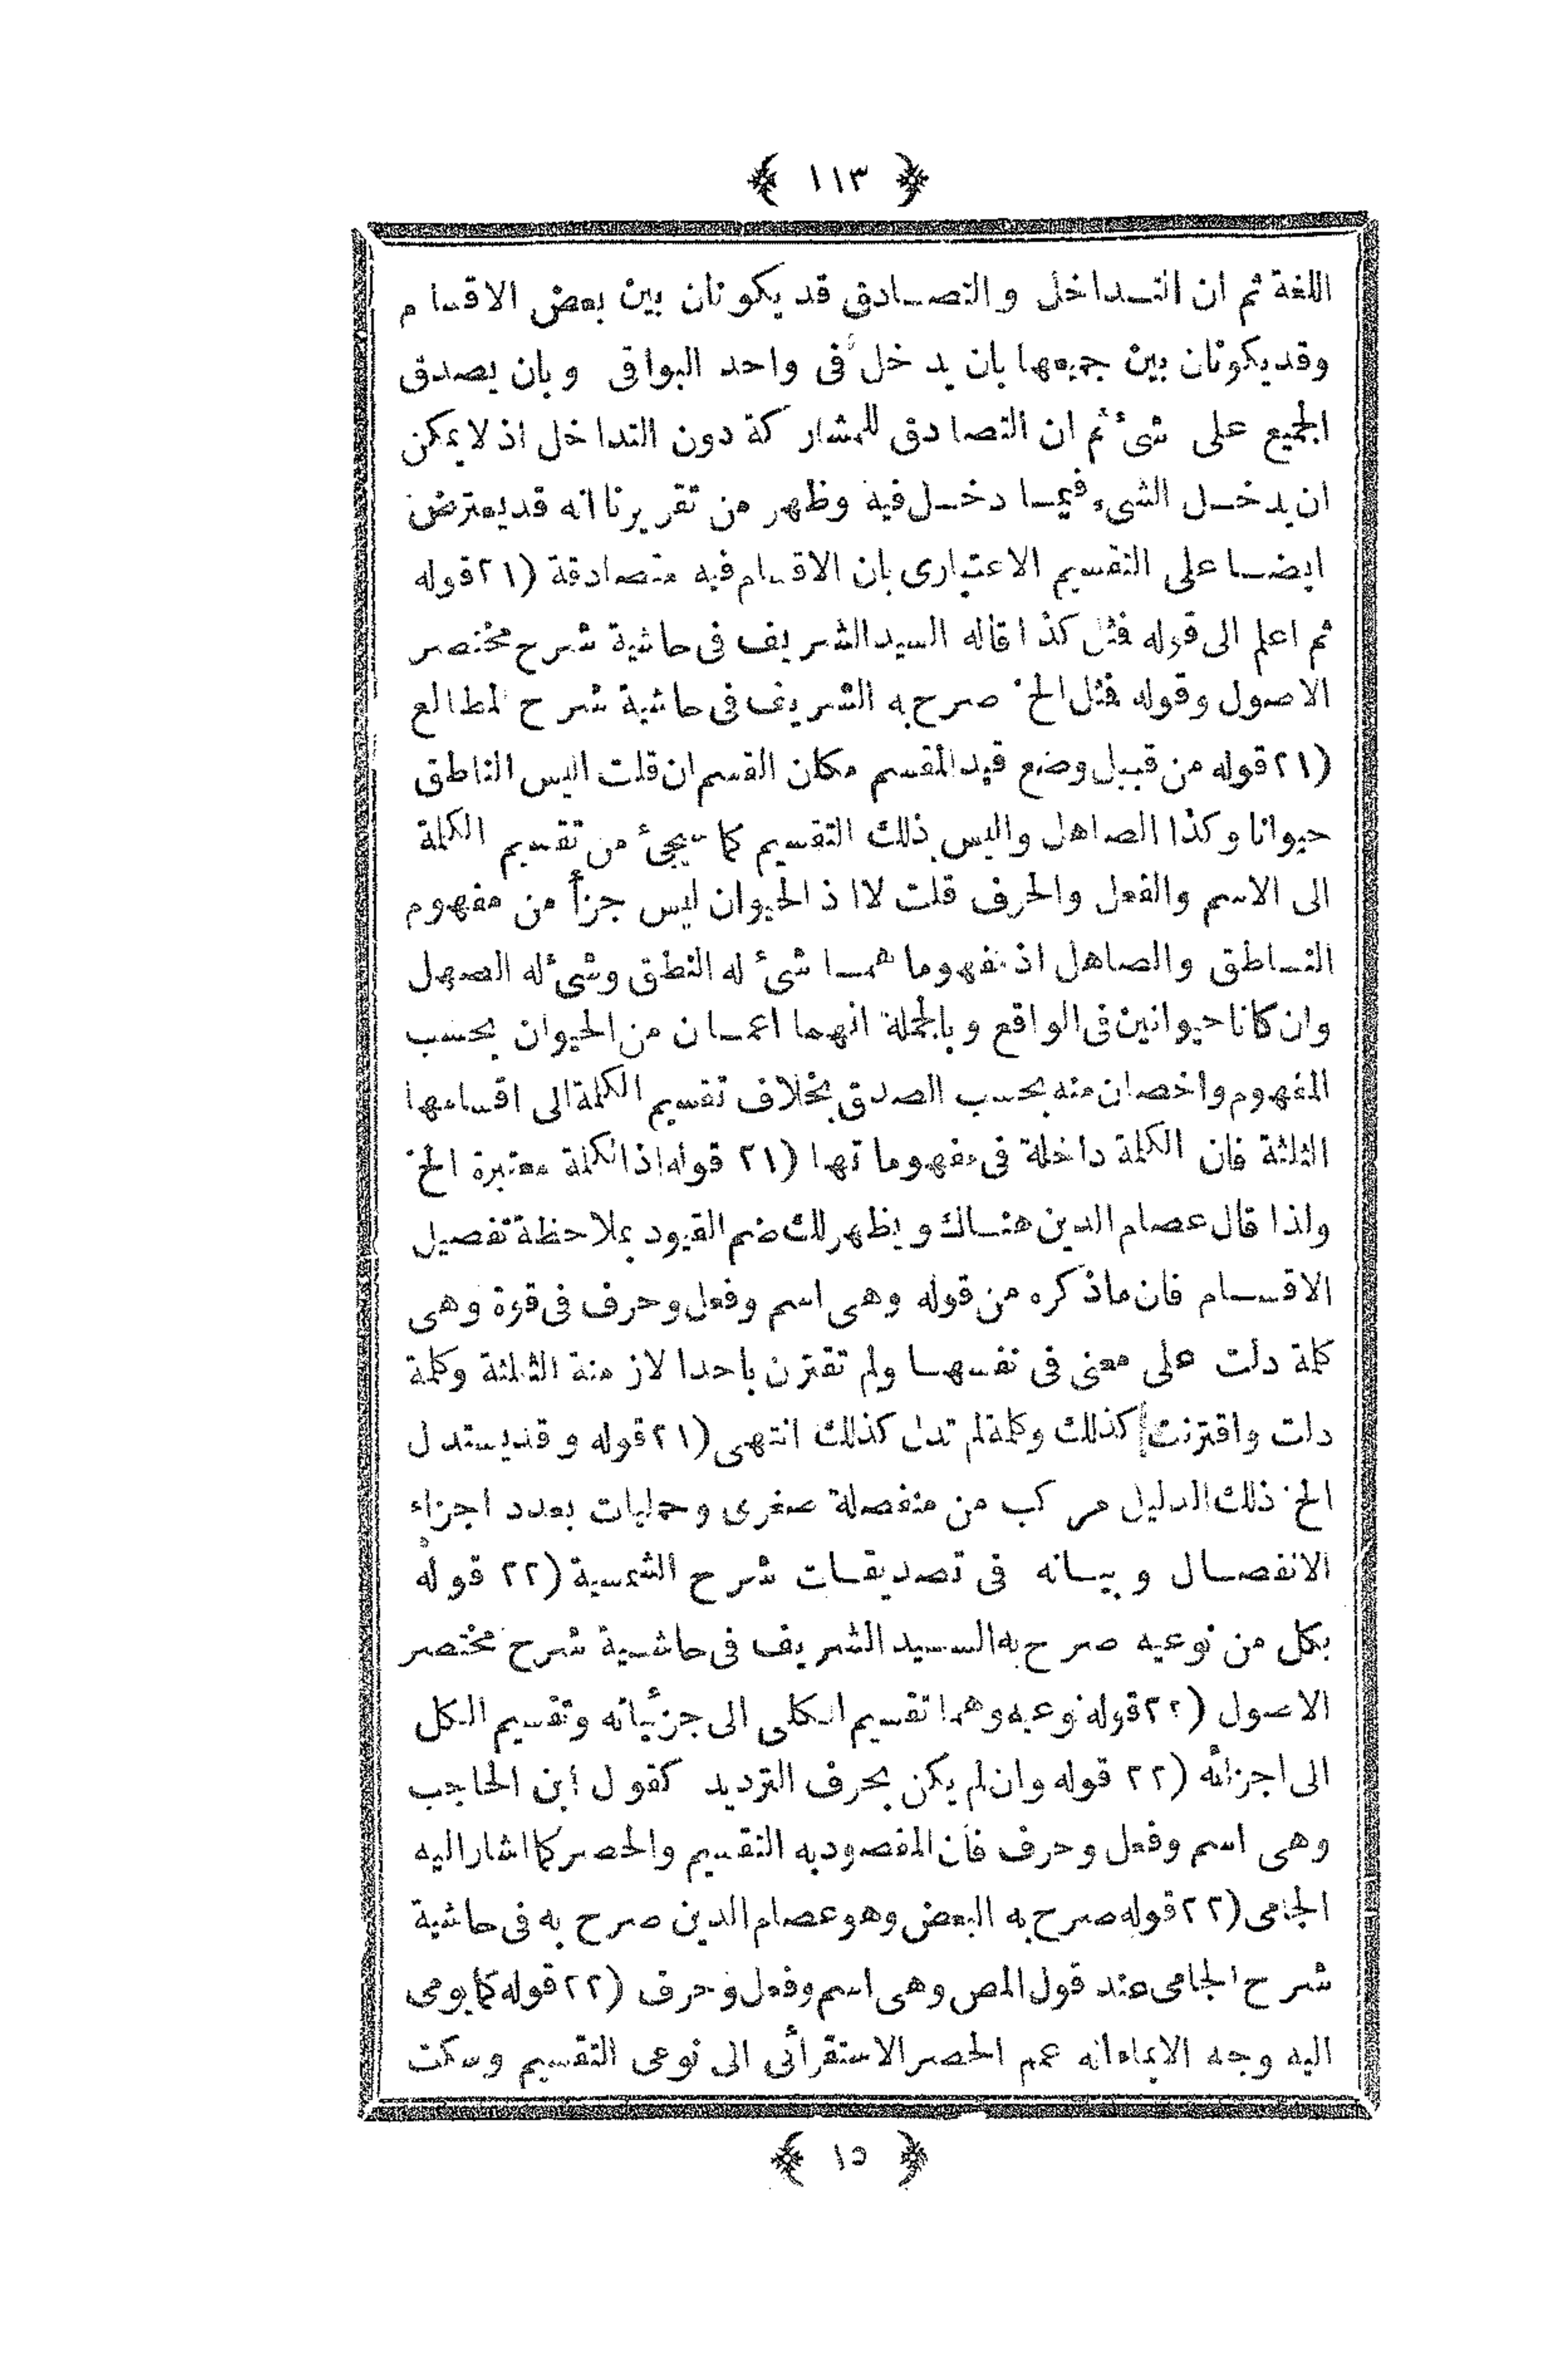 ﴿ ١١٣ ﴾
اللغة ثم ان التداخل والتصادق قد يكونان بين بعض الاقسام
وقد يكونان بين جميعها بان يدخل فى واحد البواقى وبان يصدق
الجميع على شئ ثم ان التصادق للمشاركة دون التداخل اذ لا يمكن
ان يدخل الشىء فيما دخل فيه وظهر من تقريرنا انه قد يعترض
ايضا على التقسيم الاعتبارى بان الاقسام فيه متصادقة (٢١ قوله
ثم اعلم الى قوله فمثل كذا قاله السيد الشريف فى حاشية شرح مختصر
الاصول وقوله فمثل الخ صرح به الشريف فى حاشية شرح المطالع
(٢١ قوله من قبيل وضع قيد المقسم مكان القسم ان قلت اليس الناطق
حيوانا وكذا الصاهل واليس ذلك التقسيم كما سيجئ من تقسيم الكلمة
الى الاسم والفعل والحرف قلت لا اذ الحيوان ليس جزأ من مفهوم
الناطق والصاهل اذ مفهوما هما شئ له النطق وشئ له الصهل
وان كانا حيوانين فى الواقع وبالجملة انهما اعمان من الحيوان بحسب
المفهوم واخصان منه بحسب الصدق بخلاف تقسيم الكلمة الى اقسامها
الثلثة فان الكلمة داخلة فى مفهوماتها (٢١ قوله اذ الكلمة معتبرة الخ
ولذا قال عصام الدين هناك ويظهر لك ضم القيود بملاحظة تفصيل
الاقسام فان ماذكره من قوله وهى اسم وفعل وحرف فى قوة وهى
كلمة دلت على معنى فى نفسها ولم تقترن باحد الازمنة الثلثة وكلمة
دلت واقترنت كذلك وكلمة لم تدل كذلك انتهى (٢١ قوله وقد يستدل
الخ ذلك الدليل مركب من منفصلة صغرى وحمليات بعدد اجزاء
الانفصال وبيانه فى تصديقات شرح الشمسية (٢٢ قوله
بكل من نوعيه صرح به السيد الشريف فى حاشية شرح مختصر
الاصول (٢٢ قوله نوعيه وهما تقسيم الكلى الى جزئياته وتقسيم الكل
الى اجزائه (٢٢ قوله وان لم يكن بحرف الترديد كقول ابن الحاجب
وهى اسم وفعل وحرف فان المقصود به التقسيم والحصر كما اشار اليه
الجامى (٢٢ قوله صرح به البعض وهو عصام الدين صرح به فى حاشية
شرح الجامى عند قول المص وهى اسم وفعل وحرف (٢٢ قوله كما يومى
اليه وجه الايماء انه عمم الحصر الاستقرائى الى نوعى التقسيم وسكت
﴿ ١٥ ﴾